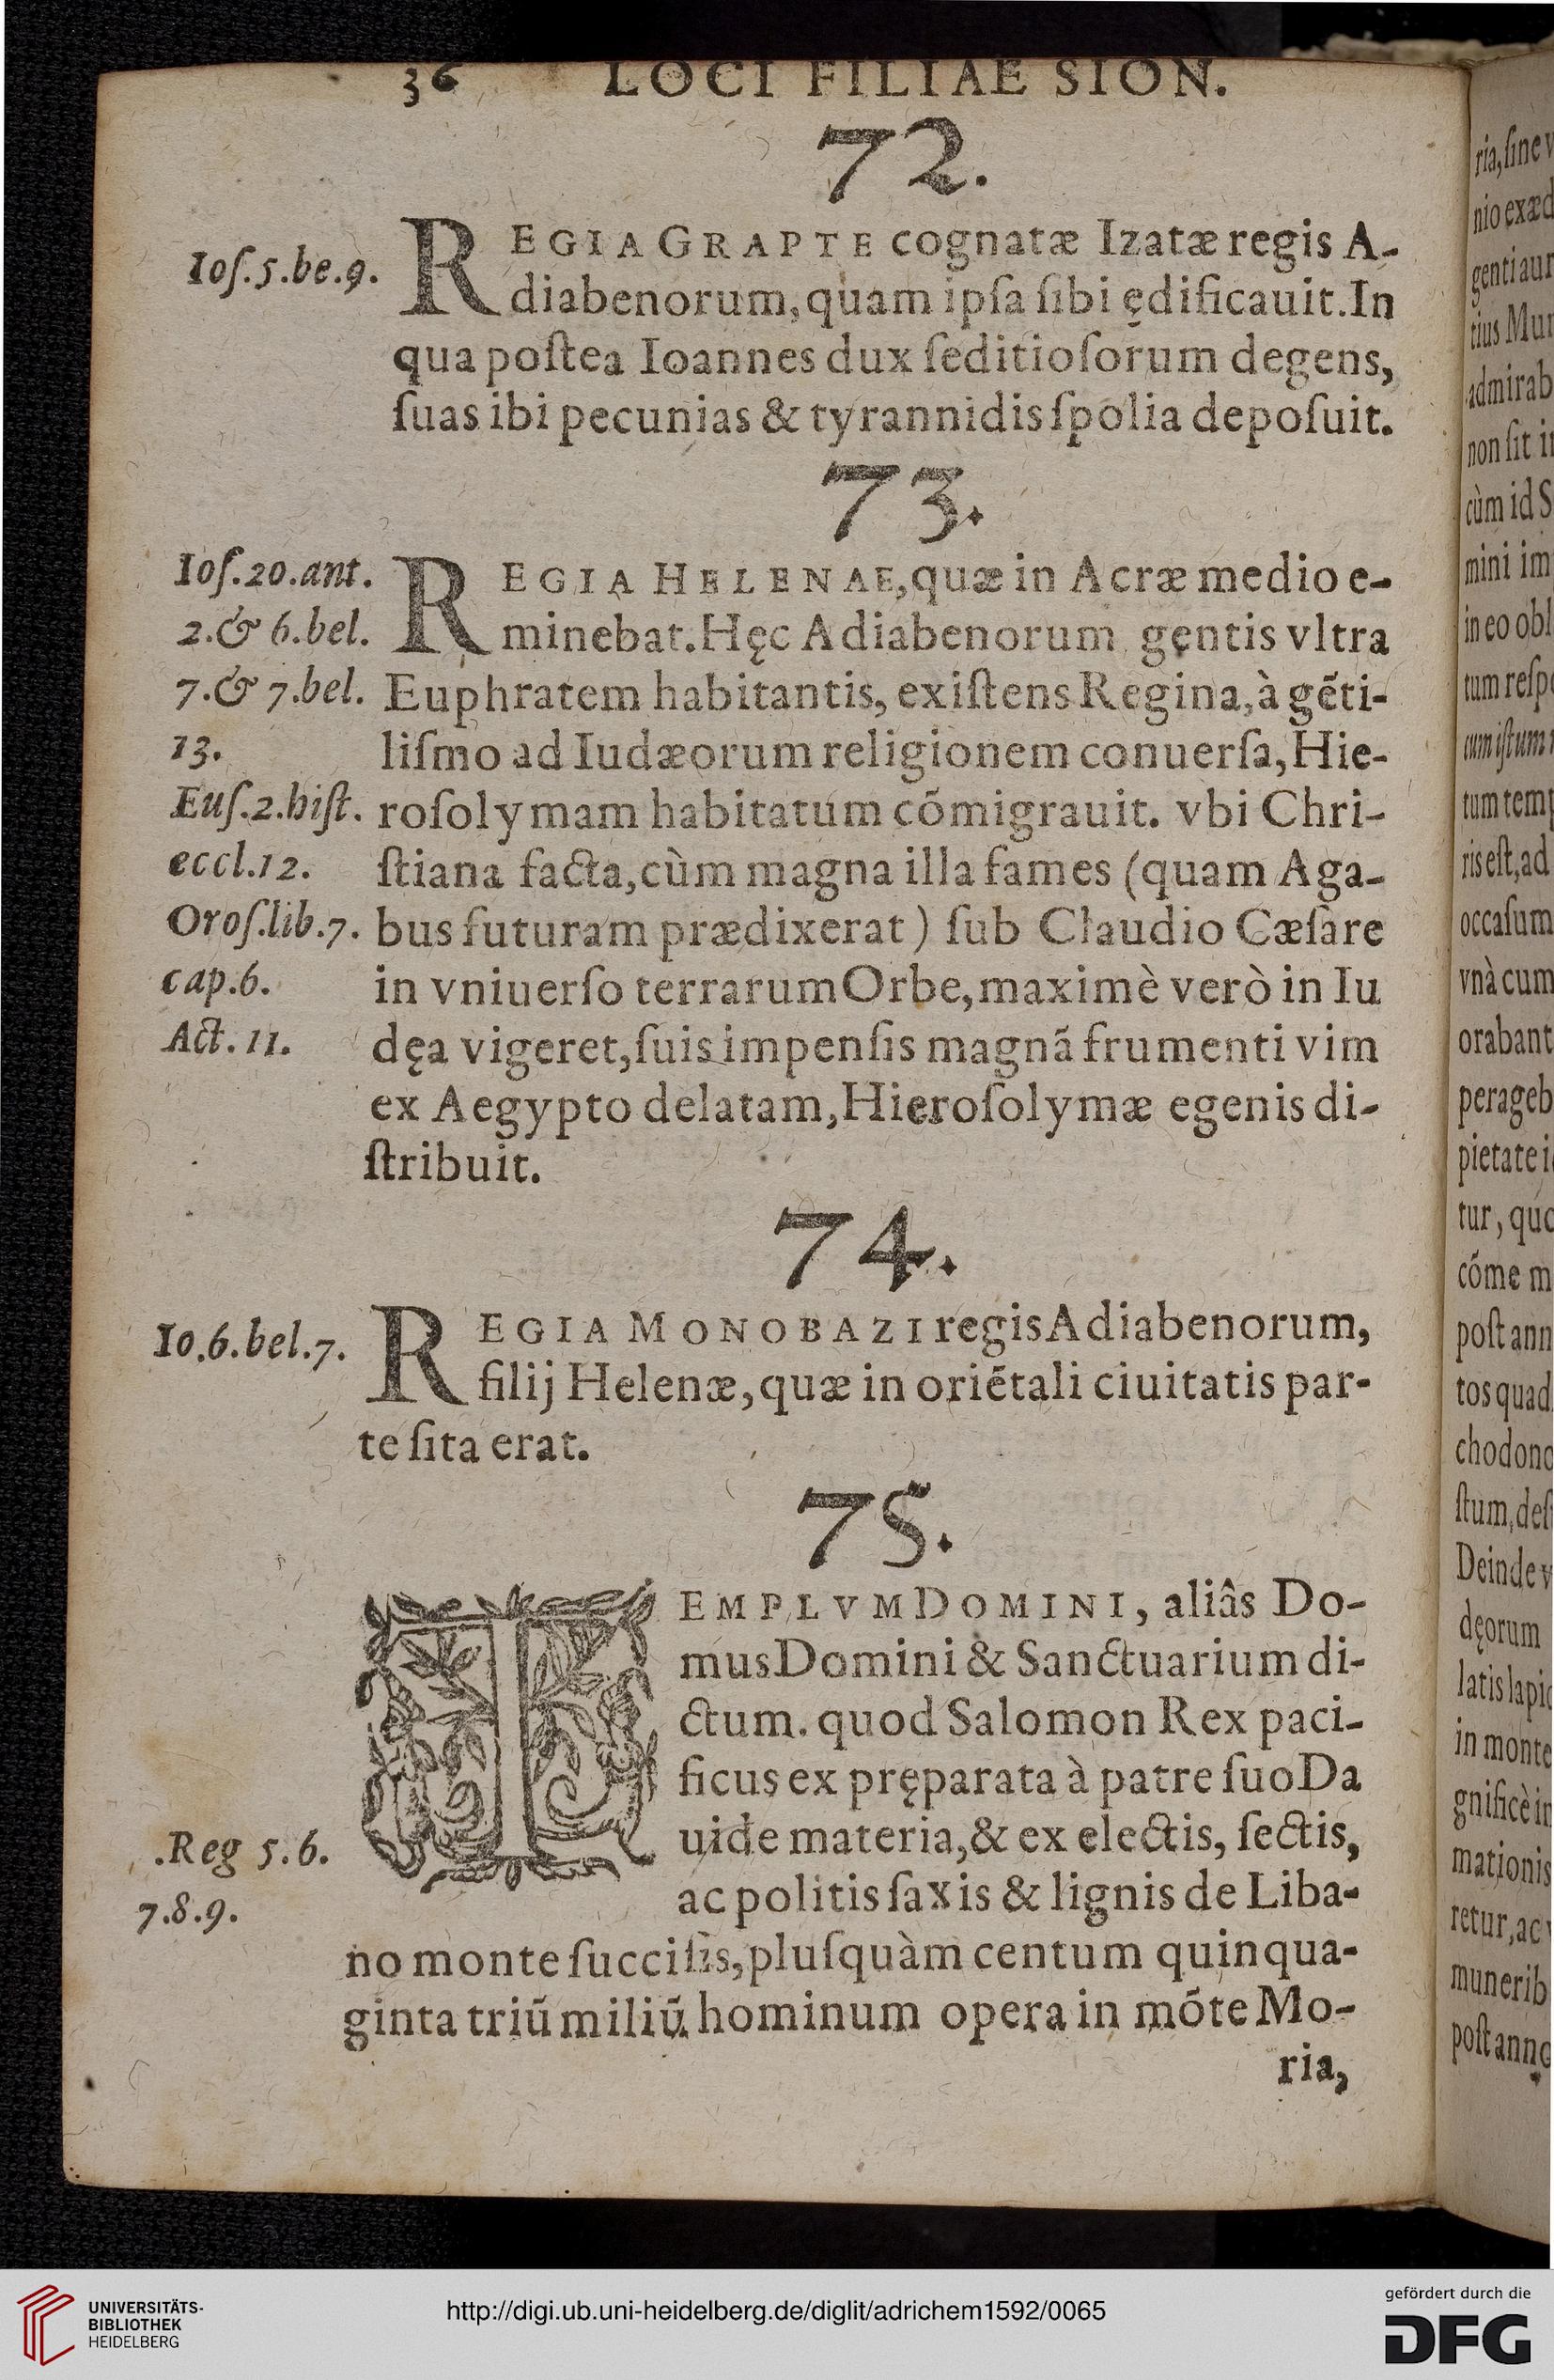 36 LOCI FILIAE SION.
72.
Ioſ.5.be.9.
REGIA GRAPTE cognatæ Izatæ regis A-
diabenorum, quam ipſa ſibi ędificauit. In
qua poſtea Ioannes dux ſeditioſorum degens,
ſuas ibi pecunias & tyrannidis ſpolia depoſuit.
73.
Ioſ.20.ant.
2.& 6.bel.
7.& 7.bel.
13.
Euſ.2.hiſt.
eccl.12.
Oroſ.lib.7.
cap.6.
Act.11.
REGIA HELENAE, quæ in Acræ medio e-
minebat. Hęc Adiabenorum gentis vltra
Euphratem habitantis, exiſtens Regina, à gẽti-
liſmo ad Iudæorum religionem conuerſa, Hie-
roſolymam habitatum cõmigrauit. vbi Chri-
ſtiana facta, cùm magna illa fames (quam Aga-
bus futuram prædixerat) ſub Claudio Cæſare
in vniuerſo terrarum Orbe, maximè verò in Iu
dęa vigeret, ſuis impenſis magnã frumenti vim
ex Aegypto delatam, Hieroſolymæ egenis di-
ſtribuit.
74.
Io.6.bel.7.
REGIA MONOBAZI regis Adiabenorum,
filij Helenæ, quæ in oriẽtali ciuitatis par-
te ſita erat.
75.
TEMPLVM DOMINI, aliâs Do-
mus Domini & Sanctuarium di-
ctum. quod Salomon Rex paci-
ficus ex pręparata à patre ſuo Da
uide materia, & ex electis, ſectis,
ac politis ſaxis & lignis de Liba-
.Reg 5.6.
7.8.9.
no monte ſucciſis, pluſquàm centum quinqua-
ginta triũ miliũ hominum opera in mõte Mo-
ria,
ria, ſine v
nio exæd
genti aur
tius Mun
admirab
non ſit i
cùm id S
mini im
in eo obl
tum reſp
cum iſtum
tum temp
ris eſt, ad
occaſum
vnà cum
orabant
perageb
pietate i
tur, quo
cõme m
poſt ann
tos quad
chodono
ſtum, deſ
Deinde v
dęorum
latis lapid
in monte
gnificè in
mationis
retur, ac
munerib
poſt anno
UNIVERSITÄTS-
BIBLIOTHEK
HEIDELBERG
http://digi.ub.uni-heidelberg.de/diglit/adrichem1592/0065
gefördert durch die
DFG